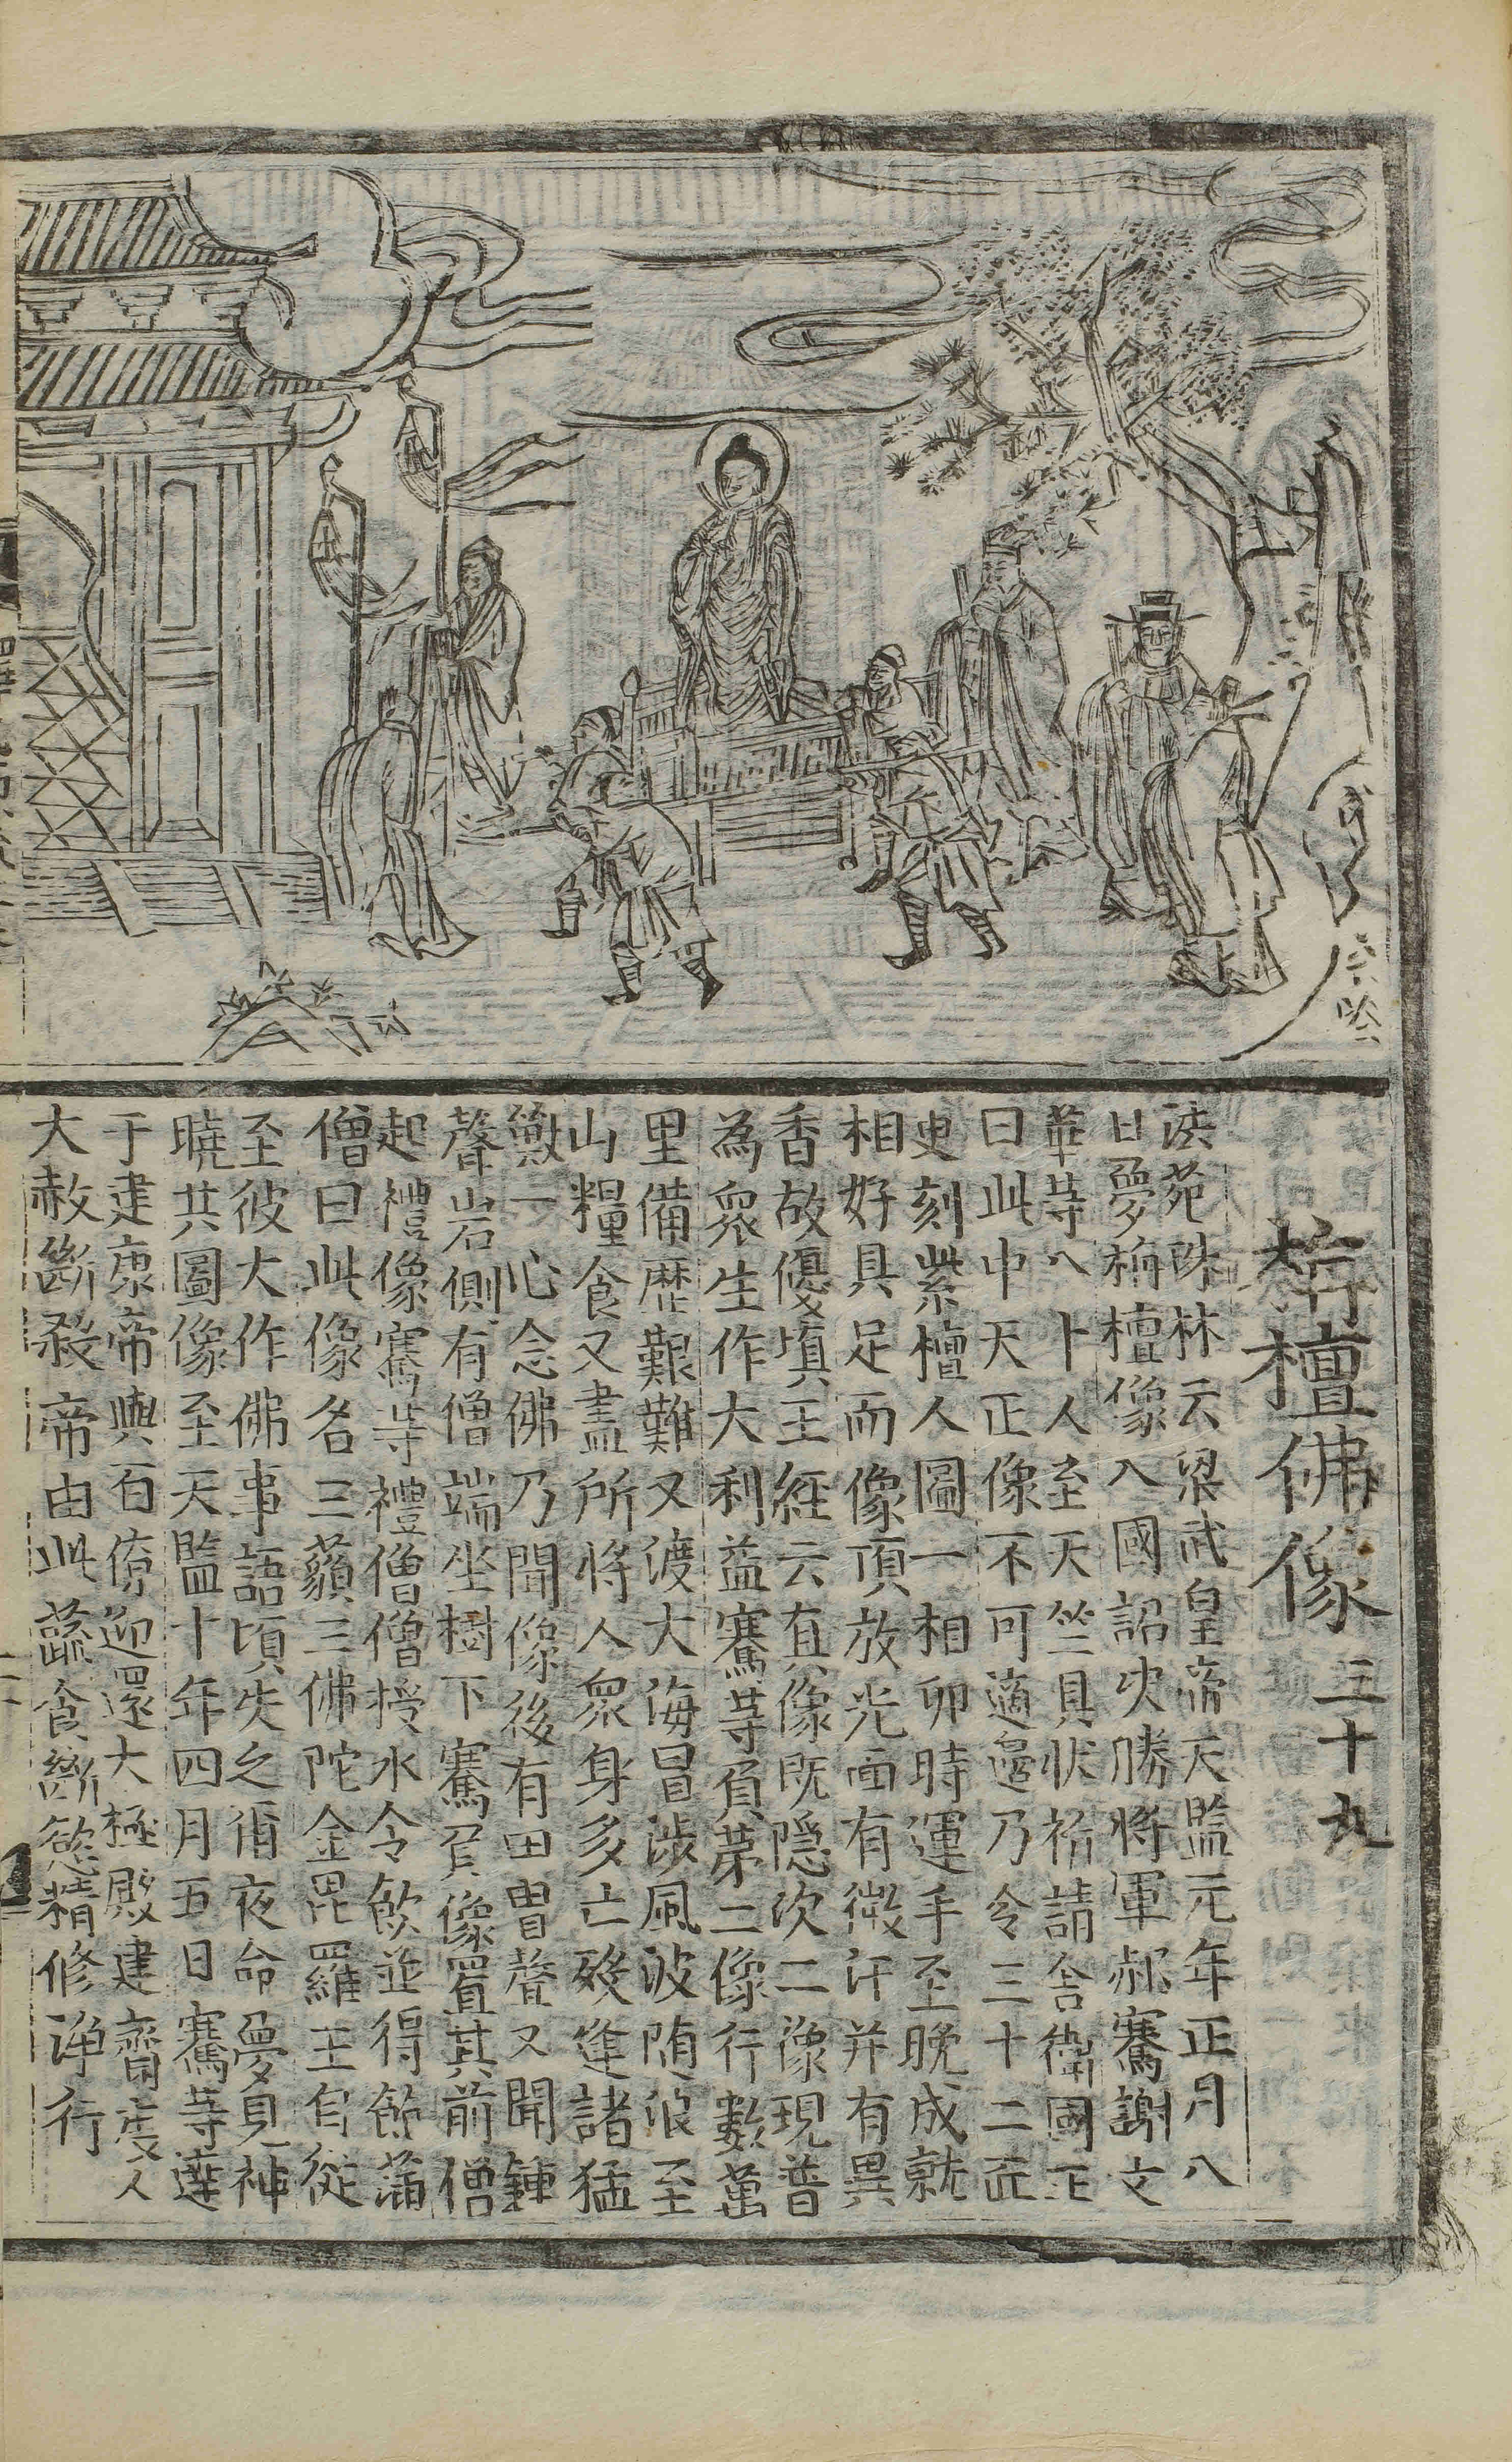 栴檀佛像 三十九
法苑珠林云梁武皇帝天監元年正月八
日夢栴檀像入國詔決勝將軍郝騫謝文
華等八十人至天竺具狀祈請舍衛國王
曰此中天正像不可適邊乃令三十二匠
更刻紫檀人圖一相卯時運手至晚成就
相好具足而像頂放光面有微汗并有異
香故優填王經云真像既隐次二像現普
為衆生作大利益騫等負第二像行數萬
里備歷艱難又渡大海冒涉風波随浪至
山糧食又盡所將人衆身多亡殁逢諸猛
獸一心念佛乃聞像後有甲胄聲又聞鍾
聲岩側有僧端坐樹下騫負像置其前僧
起禮像騫等禮僧僧授水令飲並得飽滿
僧曰此像名三藐三佛陀金毘羅王自從
至彼大作佛事語頃失之爾夜命夢見神
曉共圖像至天監十年四月五日騫等達
于建康帝與百僚迎還大極殿建齋度人
大赦斷殺帝由此蔬食斷慾精修淨行